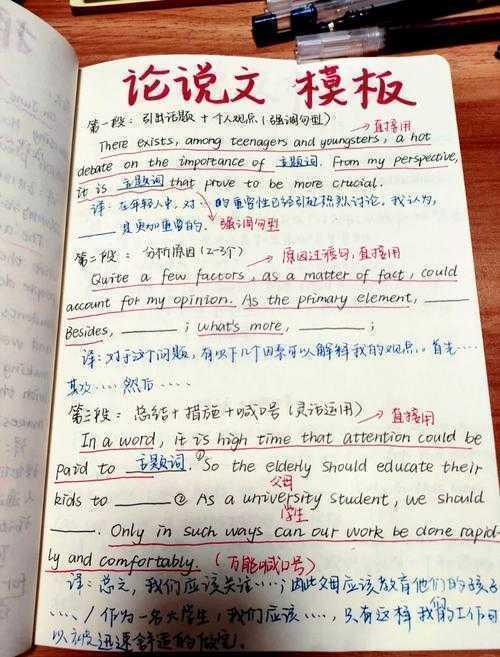 论说文 模板
第一段：引出话题 + 个人观点（强调句型）
→直接用
There exists, among teenagers and youngsters, a hot
debate on the importance of 主题词. From my perspective,
it is 主题词 that prove to be more crucial.
译：在年轻人中，对—的重要性已经引起热烈讨论。我认为，
—是更加重要的. 强调句型
第二段：分析原因（2-3个）
→原因过渡句，直接用
Quite a few factors, as a matter of fact, could
account for my opinion. As the primary element, ____
Besides, ____ ; what's more, ____ ;
译：对于这个问题，有以下几个因素可以解释我的观点。首先…
其次…. 然后…..
第三段：总结+措施+喊口号（灵活运用）
→直接用
In a word, it is high time that attention could be
paid to 主题词. ①So the elderly should educate their
父母
kids to ____ ② As a university student, we should
学生
____. Only in such ways can our work be done rapid-
ly and comfortably. （万能喊口号）
译：总之，我们应该关注……；因此父母应该教育他们的孩子
…../作为一名大学生，我们应该….，只有这样我们的工作可
以被迅速舒适的做完.